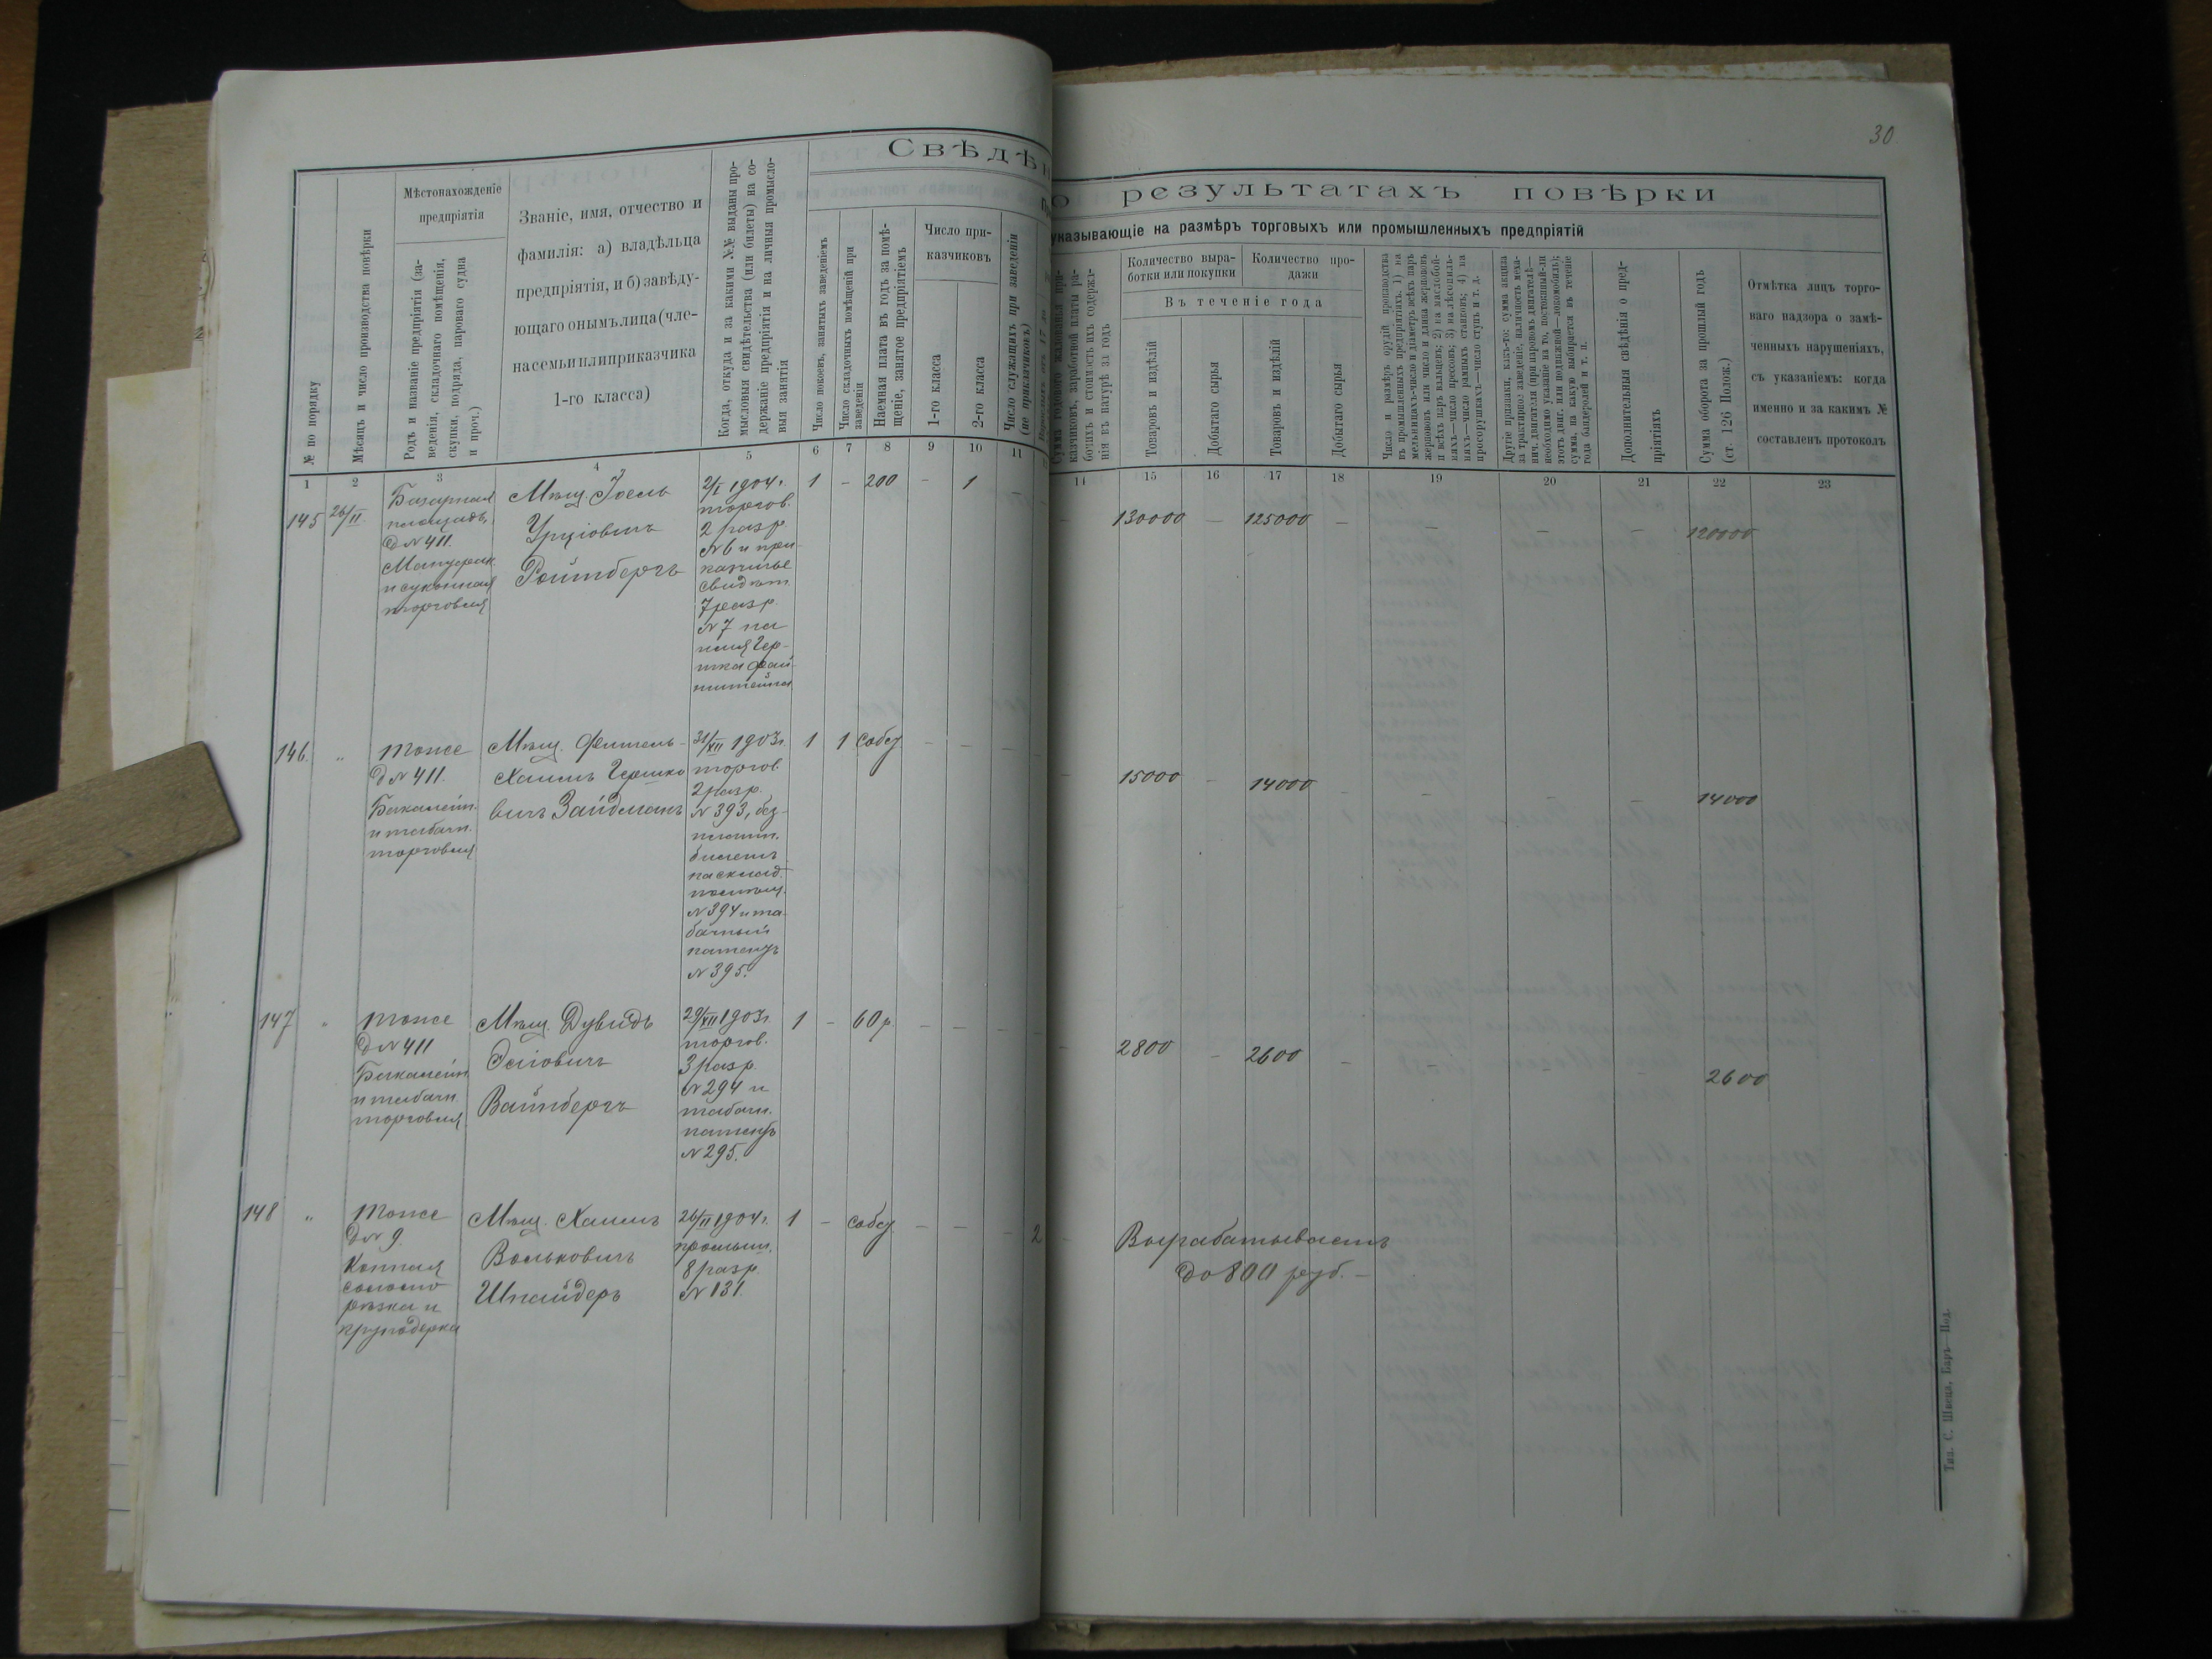 30
Свѣдѣн
о результатахъ повѣрки
указывающіе на размѣръ торговыхъ или промышленныхъ предпріятій
№ по порядку
Мѣсяцъ и число производства повѣрки
Мѣстонахожденіе
предпріятія
Родъ и названіе предпріятія (за-
веденія, складочнаго помѣщенія,
скупки, подряда, пароваго судна
и проч.)
Званіе, имя, отчество и
фамилія: а) владѣльца
предпріятія, и б) завѣду-
ющаго онымъ лица (чле-
на семьи или приказчика
1-го класса)
Когда, откуда и за какими №№ выданы про-
мысловыя свидѣтельства (или билеты) на со-
держаніе предпріятія и на личныя промысло-
выя занятія
Число покоевъ, занятыхъ заведеніемъ
Число складочныхъ помѣщеній при
заведеніи
Наемная плата въ годъ за помѣ-
щеніе, занятое предпріятіемъ
Число при-
казчиковъ
1-го класса
2-го класса
Число служащихъ при заведеніи
(не приказчиковъ)
Сумма годового жалованья при-
казчиковъ, заработной платы ра-
бочихъ и стоимость ихъ содержа-
нія въ натурѣ за годъ
Количество выра-
ботки или покупки
Количество про-
дажи
Въ теченіе года
Товаровъ и издѣлій
Добытаго сырья
Товаровъ и издѣлій
Добытаго сырья
Число и размѣръ орудій производства
въ промышленныхъ предпріятіяхъ. 1) на
мельницахъ—число и діаметръ всѣхъ паръ
жернововъ или число и длина жернововъ
и всѣхъ паръ вальцевъ; 2) на маслобой-
няхъ—число прессовъ; 3) на лѣсопиль-
няхъ—число рамныхъ становъ; 4) на
просорушкахъ—число ступъ и т. д.
Другіе признаки, какъ-то: сумма акциза
за трактирное заведеніе, наличность меха-
нич. двигателя (при паровомъ двигателѣ—
необходимо указаніе на то, постоянный-ли
этотъ двиг. или подвижной—локомобиль);
сумма, на какую выбирается въ теченіе
года бандеролей и т. п.
Дополнительныя свѣдѣнія о пред-
пріятіяхъ
Сумма оборота за прошлый годъ
(ст. 126 Полож.)
Отмѣтка лицъ торго-
ваго надзора о замѣ-
ченныхъ нарушеніяхъ,
съ указаніемъ: когда
именно и за какимъ №
составленъ протоколъ
1 2 3 4 5 6 7 8 9 10 11
14 15 16 17 18 19 20 21 22 23
145 26/II
Базарная
площадь,
д № 411.
Мануфак.
и суконная
торговля
Мѣщ. Іоель
Урціовичъ
Ройтбергъ
2/I 1904 г.
торгов.
2 разр.
№ 6 и при-
казчичье
свидѣт.
7 разр.
№ 7 на
имя Гер-
шка Фай-
нштейна
1 – 200 – 1 –
– 130000 – 125000 – – – – 120000
146. "
тоже
д № 411.
Бакалейн.
и табачн.
торговля
Мѣщ. Фишель-
Хаимъ Гершко
вичъ Зайдманъ
31/XII 1903 г.
торгов.
2 разр.
№ 393, без-
платн.
билетъ
на склад.
помѣщ.
№ 394 и та-
бачный
патентъ
№ 395.
1 1 собст – – – –
– 15000 – 14000 – – – – 14000
147 "
тоже
д № 411
Бакалейн.
и табачн.
торговля
Мѣщ. Дувидъ
Осіовичъ
Вайнбергъ
29/XII 1903 г.
торгов.
3 разр.
№ 294 и
табачн.
патентъ
№ 295.
1 – 60 р. – – – –
– 2800 – 2600 – – – – 2600
148 "
тоже
д № 9.
Конная
соломо
рѣзка и
круподерка
Мѣщ. Хаимъ
Вольковичъ
Шнайдеръ
26/II 1904 г.
промышл.
8 разр.
№ 131.
1 – собст – – – 2
– Вырабатываетъ
до 800 руб. –
Тип. С. Швеца, Баръ—Под.